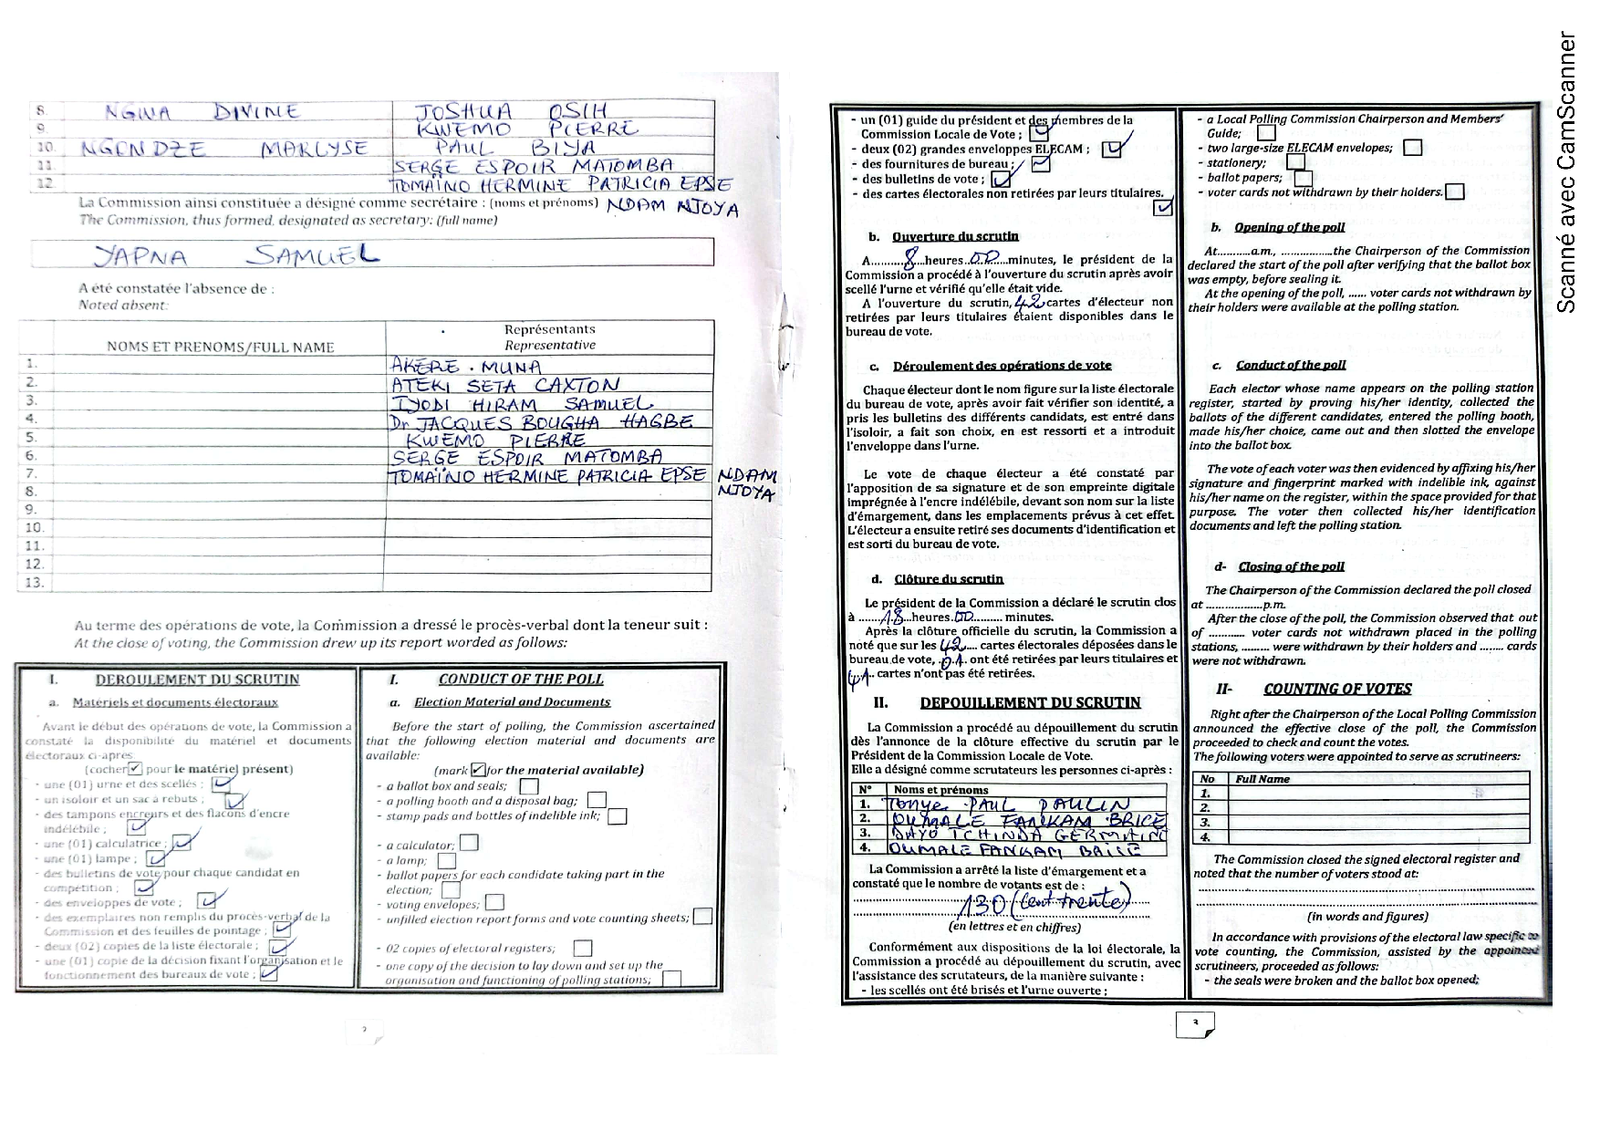 8. NGWA DIVINE JOSHUA OSIH
9. KWEMO PIERRE
10. NGENDZE MARLYSE PAUL BIYA
11. SERGE ESPOIR MATOMBA
12. TOMAÏNO HERMINE PATRICIA EPSE
La Commission ainsi constituée a désigné comme secrétaire : (noms et prénoms) NDAM NJOYA
The Commission, thus formed, designated as secretary: (full name)
YAPNA SAMUEL
A été constatée l'absence de :
Noted absent:
NOMS ET PRENOMS/FULL NAME
Représentants
Representative
1. AKERE . MUNA
2. ATEKI SETA CAXTON
3. IYODI HIRAM SAMUEL
4. Dr JACQUES BOUGHA HAGBE
5. KWEMO PIERRE
6. SERGE ESPOIR MATOMBA
7. TOMAÏNO HERMINE PATRICIA EPSE NDAM
8. NJOYA
9.
10.
11.
12.
13.
Au terme des opérations de vote, la Commission a dressé le procès-verbal dont la teneur suit :
At the close of voting, the Commission drew up its report worded as follows:
I. DEROULEMENT DU SCRUTIN
a. Matériels et documents électoraux
Avant le début des opérations de vote, la Commission a
constaté la disponibilité du matériel et documents
électoraux ci-après
(cocher ✓ pour le matériel présent)
- une (01) urne et des scellés ; ✓
- un isoloir et un sac à rebuts ; ✓
- des tampons encreurs et des flacons d'encre
indélébile ; ✓
- une (01) calculatrice ; ✓
- une (01) lampe ; ✓
- des bulletins de vote pour chaque candidat en
compétition ; ✓
- des enveloppes de vote ; ✓
- des exemplaires non remplis du procès-verbal de la
Commission et des feuilles de pointage ; ✓
- deux (02) copies de la liste électorale ; ✓
- une (01) copie de la décision fixant l'organisation et le
fonctionnement des bureaux de vote ; ✓
I. CONDUCT OF THE POLL
a. Election Material and Documents
Before the start of polling, the Commission ascertained
that the following election material and documents are
available:
(mark ✓ for the material available)
- a ballot box and seals;
- a polling booth and a disposal bag;
- stamp pads and bottles of indelible ink;
- a calculator;
- a lamp;
- ballot papers for each candidate taking part in the
election;
- voting envelopes;
- unfilled election report forms and vote counting sheets;
- 02 copies of electoral registers;
- one copy of the decision to lay down and set up the
organisation and functioning of polling stations;
2
- un (01) guide du président et des membres de la
Commission Locale de Vote ; ✓
- deux (02) grandes enveloppes ELECAM ; ✓
- des fournitures de bureau ; ✓
- des bulletins de vote ; ✓
- des cartes électorales non retirées par leurs titulaires. ✓
b. Ouverture du scrutin
A..........8..heures..00....minutes, le président de la
Commission a procédé à l'ouverture du scrutin après avoir
scellé l'urne et vérifié qu'elle était vide.
A l'ouverture du scrutin, 42 cartes d'électeur non
retirées par leurs titulaires étaient disponibles dans le
bureau de vote.
c. Déroulement des opérations de vote
Chaque électeur dont le nom figure sur la liste électorale
du bureau de vote, après avoir fait vérifier son identité, a
pris les bulletins des différents candidats, est entré dans
l'isoloir, a fait son choix, en est ressorti et a introduit
l'enveloppe dans l'urne.
Le vote de chaque électeur a été constaté par
l'apposition de sa signature et de son empreinte digitale
imprégnée à l'encre indélébile, devant son nom sur la liste
d'émargement, dans les emplacements prévus à cet effet.
L'électeur a ensuite retiré ses documents d'identification et
est sorti du bureau de vote.
d. Clôture du scrutin
Le président de la Commission a déclaré le scrutin clos
à .......18....heures.00......... minutes.
Après la clôture officielle du scrutin, la Commission a
noté que sur les 42.... cartes électorales déposées dans le
bureau de vote, .01.. ont été retirées par leurs titulaires et
41.. cartes n'ont pas été retirées.
II. DEPOUILLEMENT DU SCRUTIN
La Commission a procédé au dépouillement du scrutin
dès l'annonce de la clôture effective du scrutin par le
Président de la Commission Locale de Vote.
Elle a désigné comme scrutateurs les personnes ci-après :
N° Noms et prénoms
1. Tonye PAUL PAULIN
2. OUMALE FANKAM BRICE
3. DAYO TCHINDA GERMAINE
4. OUMALE FANKAM BRISE
La Commission a arrêté la liste d'émargement et a
constaté que le nombre de votants est de :
130 (cent trente)
(en lettres et en chiffres)
Conformément aux dispositions de la loi électorale, la
Commission a procédé au dépouillement du scrutin, avec
l'assistance des scrutateurs, de la manière suivante :
- les scellés ont été brisés et l'urne ouverte ;
- a Local Polling Commission Chairperson and Members'
Guide;
- two large-size ELECAM envelopes;
- stationery;
- ballot papers;
- voter cards not withdrawn by their holders.
b. Opening of the poll
At..........a.m., .................the Chairperson of the Commission
declared the start of the poll after verifying that the ballot box
was empty, before sealing it.
At the opening of the poll, ...... voter cards not withdrawn by
their holders were available at the polling station.
c. Conduct of the poll
Each elector whose name appears on the polling station
register, started by proving his/her identity, collected the
ballots of the different candidates, entered the polling booth,
made his/her choice, came out and then slotted the envelope
into the ballot box.
The vote of each voter was then evidenced by affixing his/her
signature and fingerprint marked with indelible ink, against
his/her name on the register, within the space provided for that
purpose. The voter then collected his/her identification
documents and left the polling station.
d- Closing of the poll
The Chairperson of the Commission declared the poll closed
at ...................p.m.
After the close of the poll, the Commission observed that out
of .......... voter cards not withdrawn placed in the polling
stations, ......... were withdrawn by their holders and ........ cards
were not withdrawn.
II- COUNTING OF VOTES
Right after the Chairperson of the Local Polling Commission
announced the effective close of the poll, the Commission
proceeded to check and count the votes.
The following voters were appointed to serve as scrutineers:
No Full Name
1.
2.
3.
4.
The Commission closed the signed electoral register and
noted that the number of voters stood at:
(in words and figures)
In accordance with provisions of the electoral law specific to
vote counting, the Commission, assisted by the appointed
scrutineers, proceeded as follows:
- the seals were broken and the ballot box opened;
3
Scanné avec CamScanner